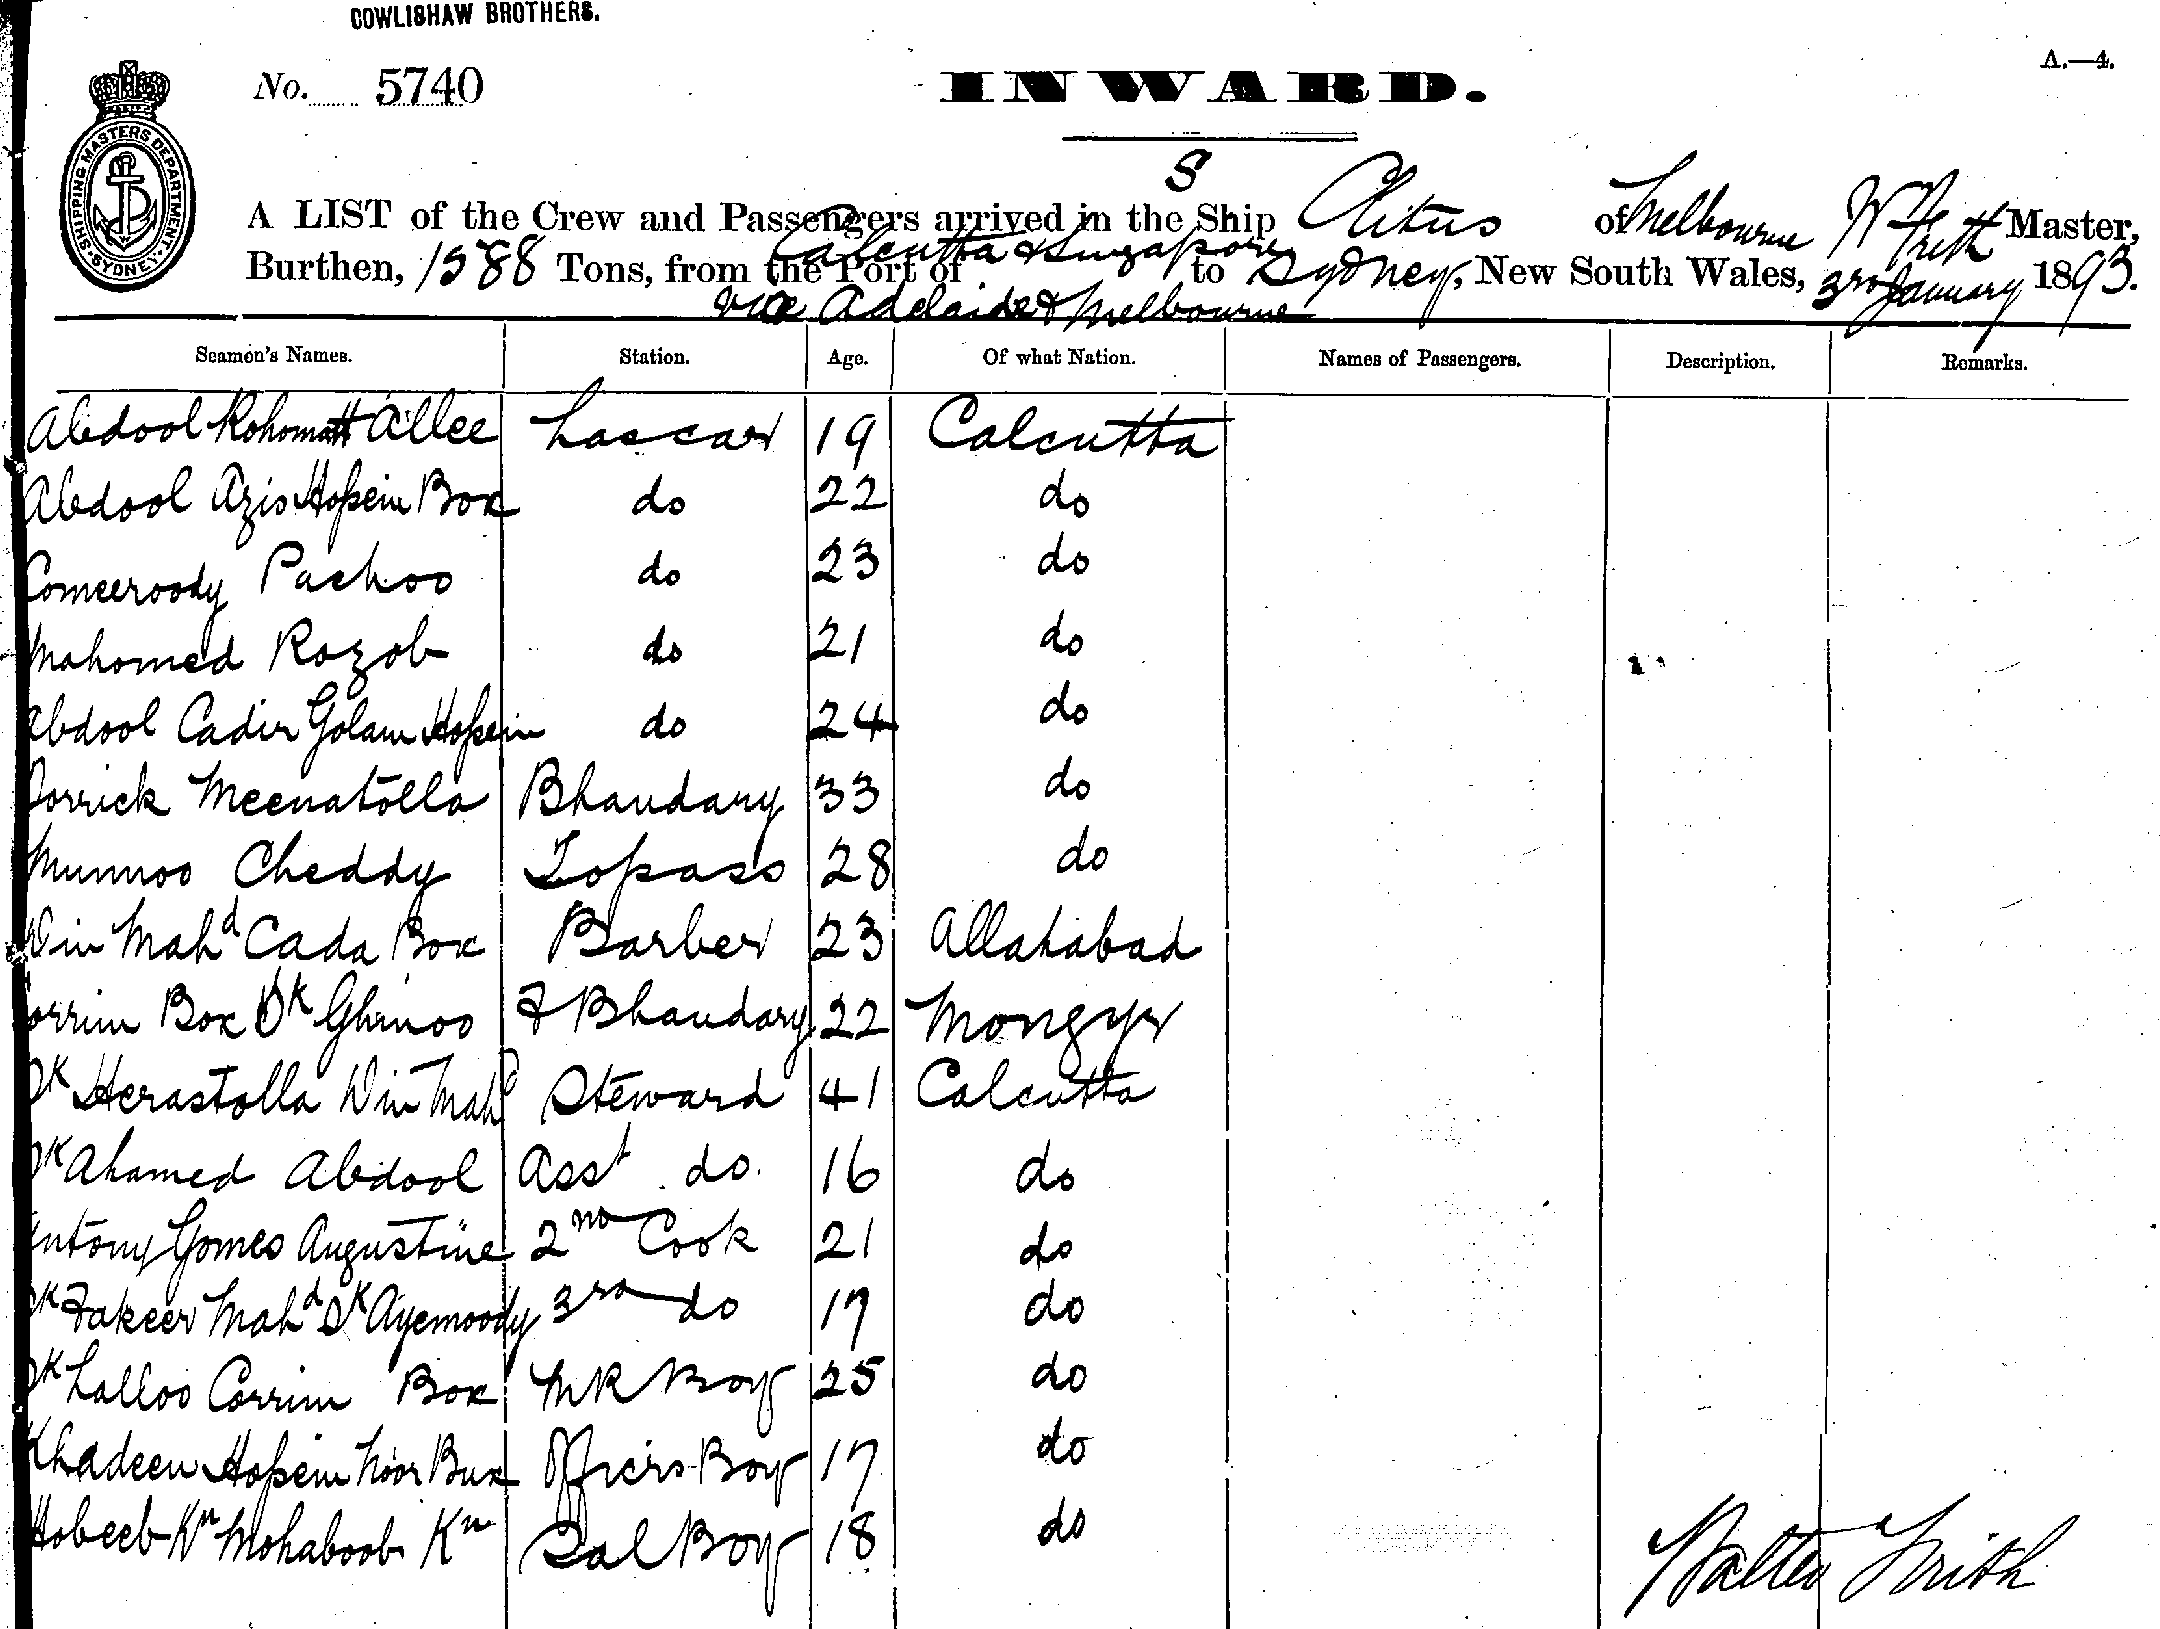 COWLISHAW BROTHERS.
A.—4.
No. 5740
INWARD.
SHIPPING MASTERS DEPARTMENT SYDNEY
S
A LIST of the Crew and Passengers arrived in the Ship Clitus of Melbourne W Frith Master,
Burthen, 1588 Tons, from the Port of Calcutta & Singapore to Sydney, New South Wales, 3rd January 1893.
via Adelaide & Melbourne
Seamen's Names. Station. Age. Of what Nation. Names of Passengers. Description. Remarks.
Abdool Rohomatt Allee Lascar 19 Calcutta
Abdool Azis Hossein Box do 22 do
Comeeroody Pachoo do 23 do
Mahomed Rozob do 21 do
Abdool Cadir Golam Hossein do 24 do
Dorrick Meenatolla Bhandary 33 do
Munnoo Cheddy Topass 28 do
Din Mahd Cada Box Barber 23 Allahabad
orrim Box Sk Ghinoo F Bhandary 22 Mongyr
Sk Herastolla Din Mahd Steward 41 Calcutta
Sk Ahamed Abdool Asst do. 16 do
Antony Gomes Augustine 2nd Cook 21 do
Sk Fakeer Mahd Sk Ayemoody 3rd do 17 do
Sk Lalloo Corrim Box MR Boy 25 do
Khadeen Hossein Noor Bux Officers Boy 17 do
Hobeeb Kn Mohaboob Kn Sal Boy 18 do
Walter Frith